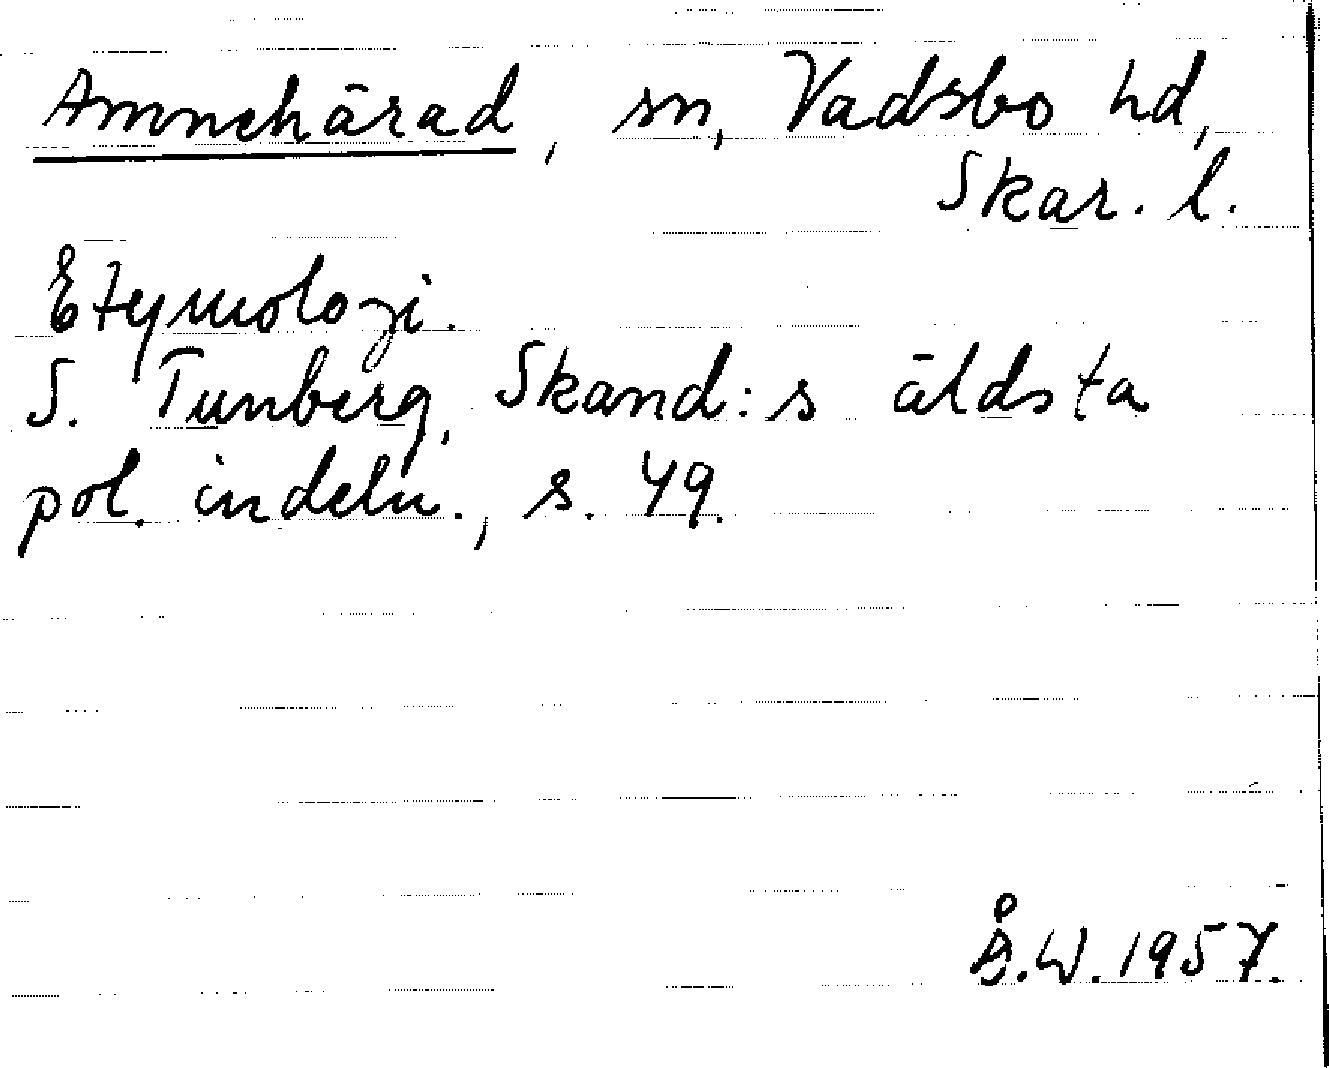 Amnehärad, sn, Vadsbo hd,
Skar. l.
Etymologi.
S. Tunberg, Skand:s äldsta
pol. indeln., s. 49.
Å.W. 1957.